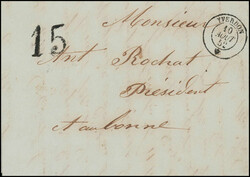 YVERDON
10
AOUT
52
15
Monsieur
Ant Rochat
Président
Aubonne